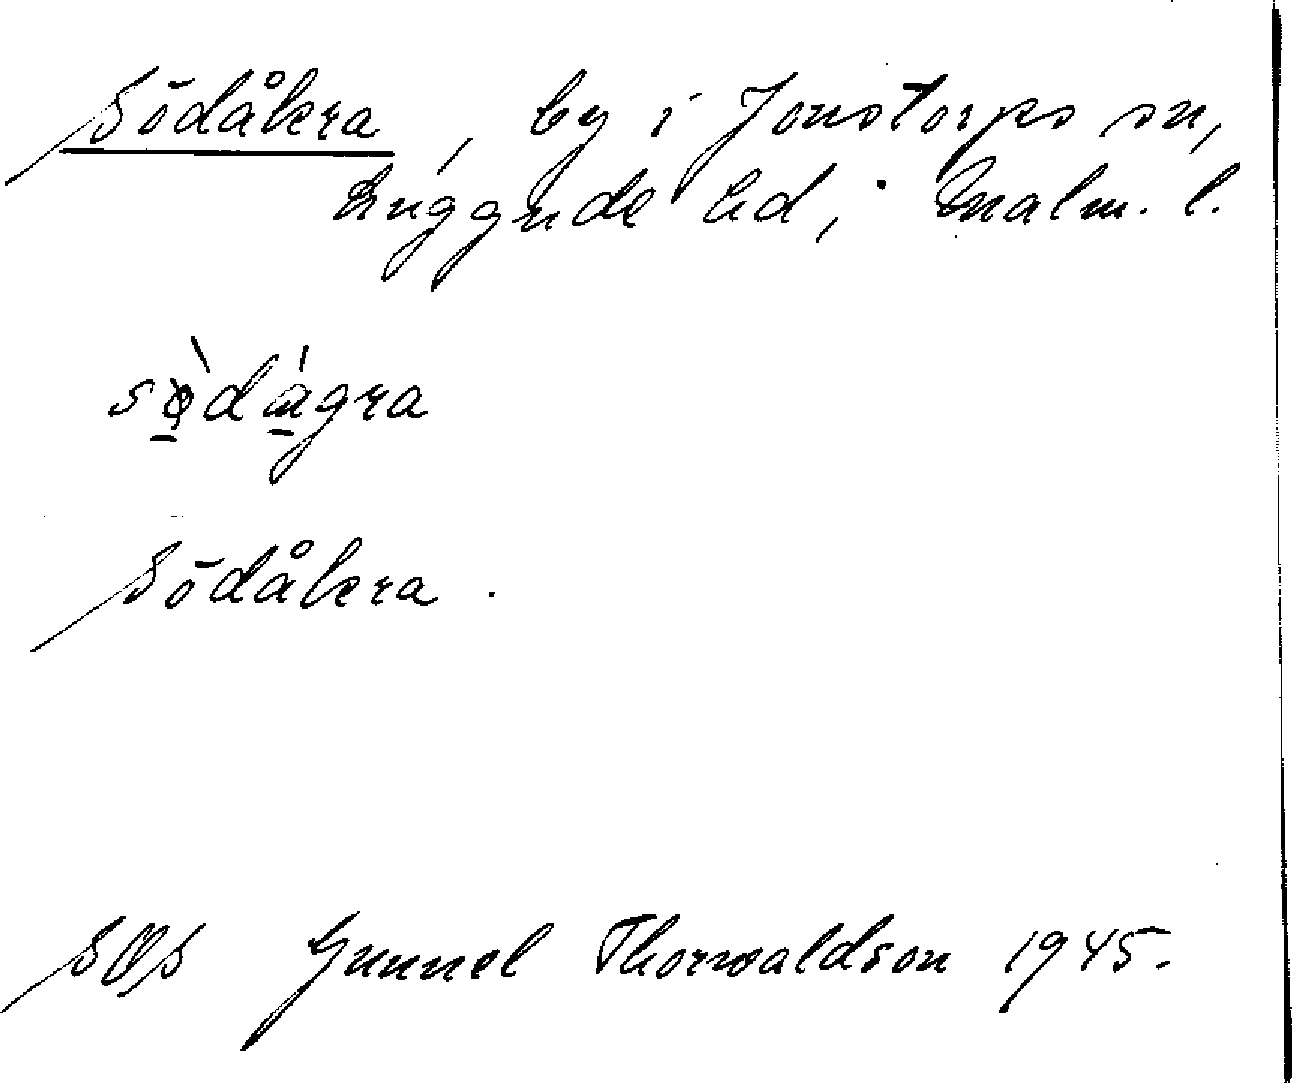 Södåkra, by i Jonstorps sn,
Luggude hd, Malm. l.
sǫ̀dágra
Södåkra.
SOS Gunnel Thorwaldson 1945.